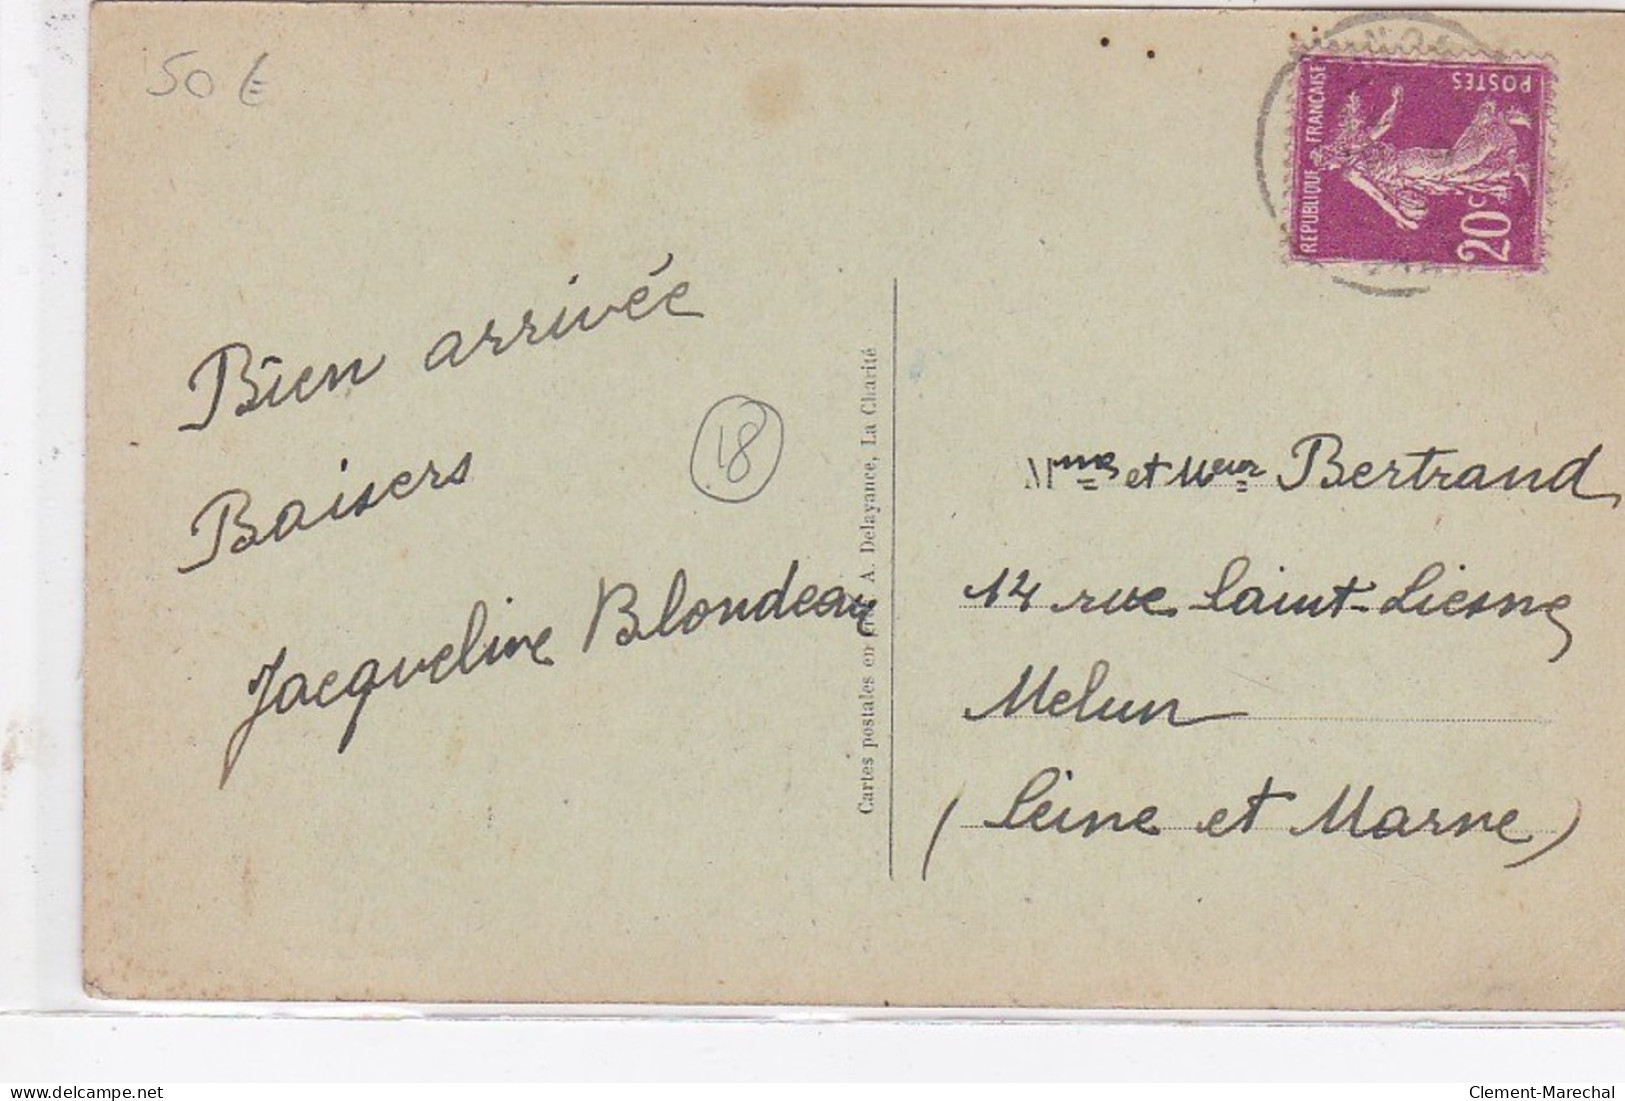 50 €
POSTES
REPUBLIQUE FRANCAISE
20c
Bien arrivée
Baisers
Jacqueline Blondeau
18
Cartes postales en A. Delayance, La Charité
Mme et Meur Bertrand
14 rue Saint-Liesne
Melun
(Seine et Marne)
delcampe.net
Clement-Marechal